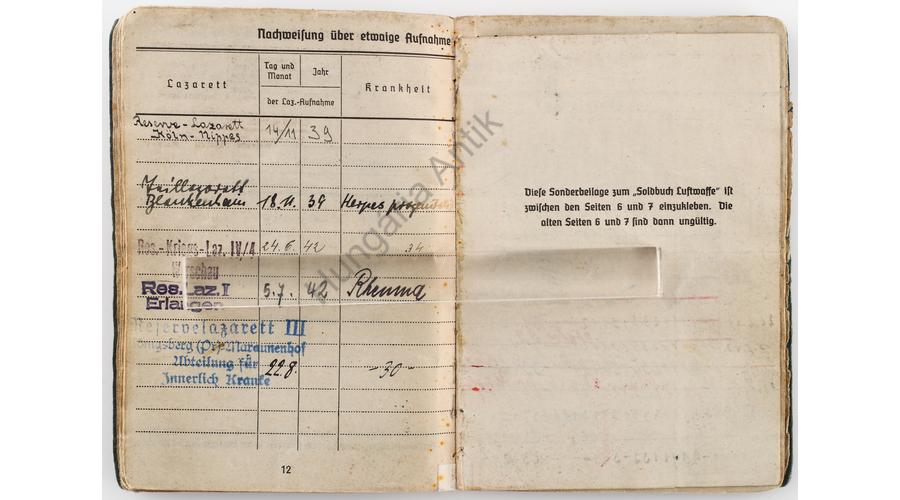 Nachweisung über etwaige Aufnahme
Lazarett
Tag und
Monat
Jahr
der Laz.-Aufnahme
Krankheit
Reserve-Lazarett
Köln-Nippes
14/11 39
Teillazarett
Blankenhain 18.11. 39 Herpes
Res.-Kriegs-Laz. IV/4 24.6. 42 34
Warschau
Res. Laz. II 5.7. 42 Rheuma
Erlangen
Reservelazarett III
Königsberg (Pr) Maraunenhof
Abteilung für
Innerlich Kranke
22.8. -30-
12
Diese Sonderbeilage zum „Soldbuch Luftwaffe" ist
zwischen den Seiten 6 und 7 einzukleben. Die
alten Seiten 6 und 7 sind dann ungültig.
Hungaria Antik